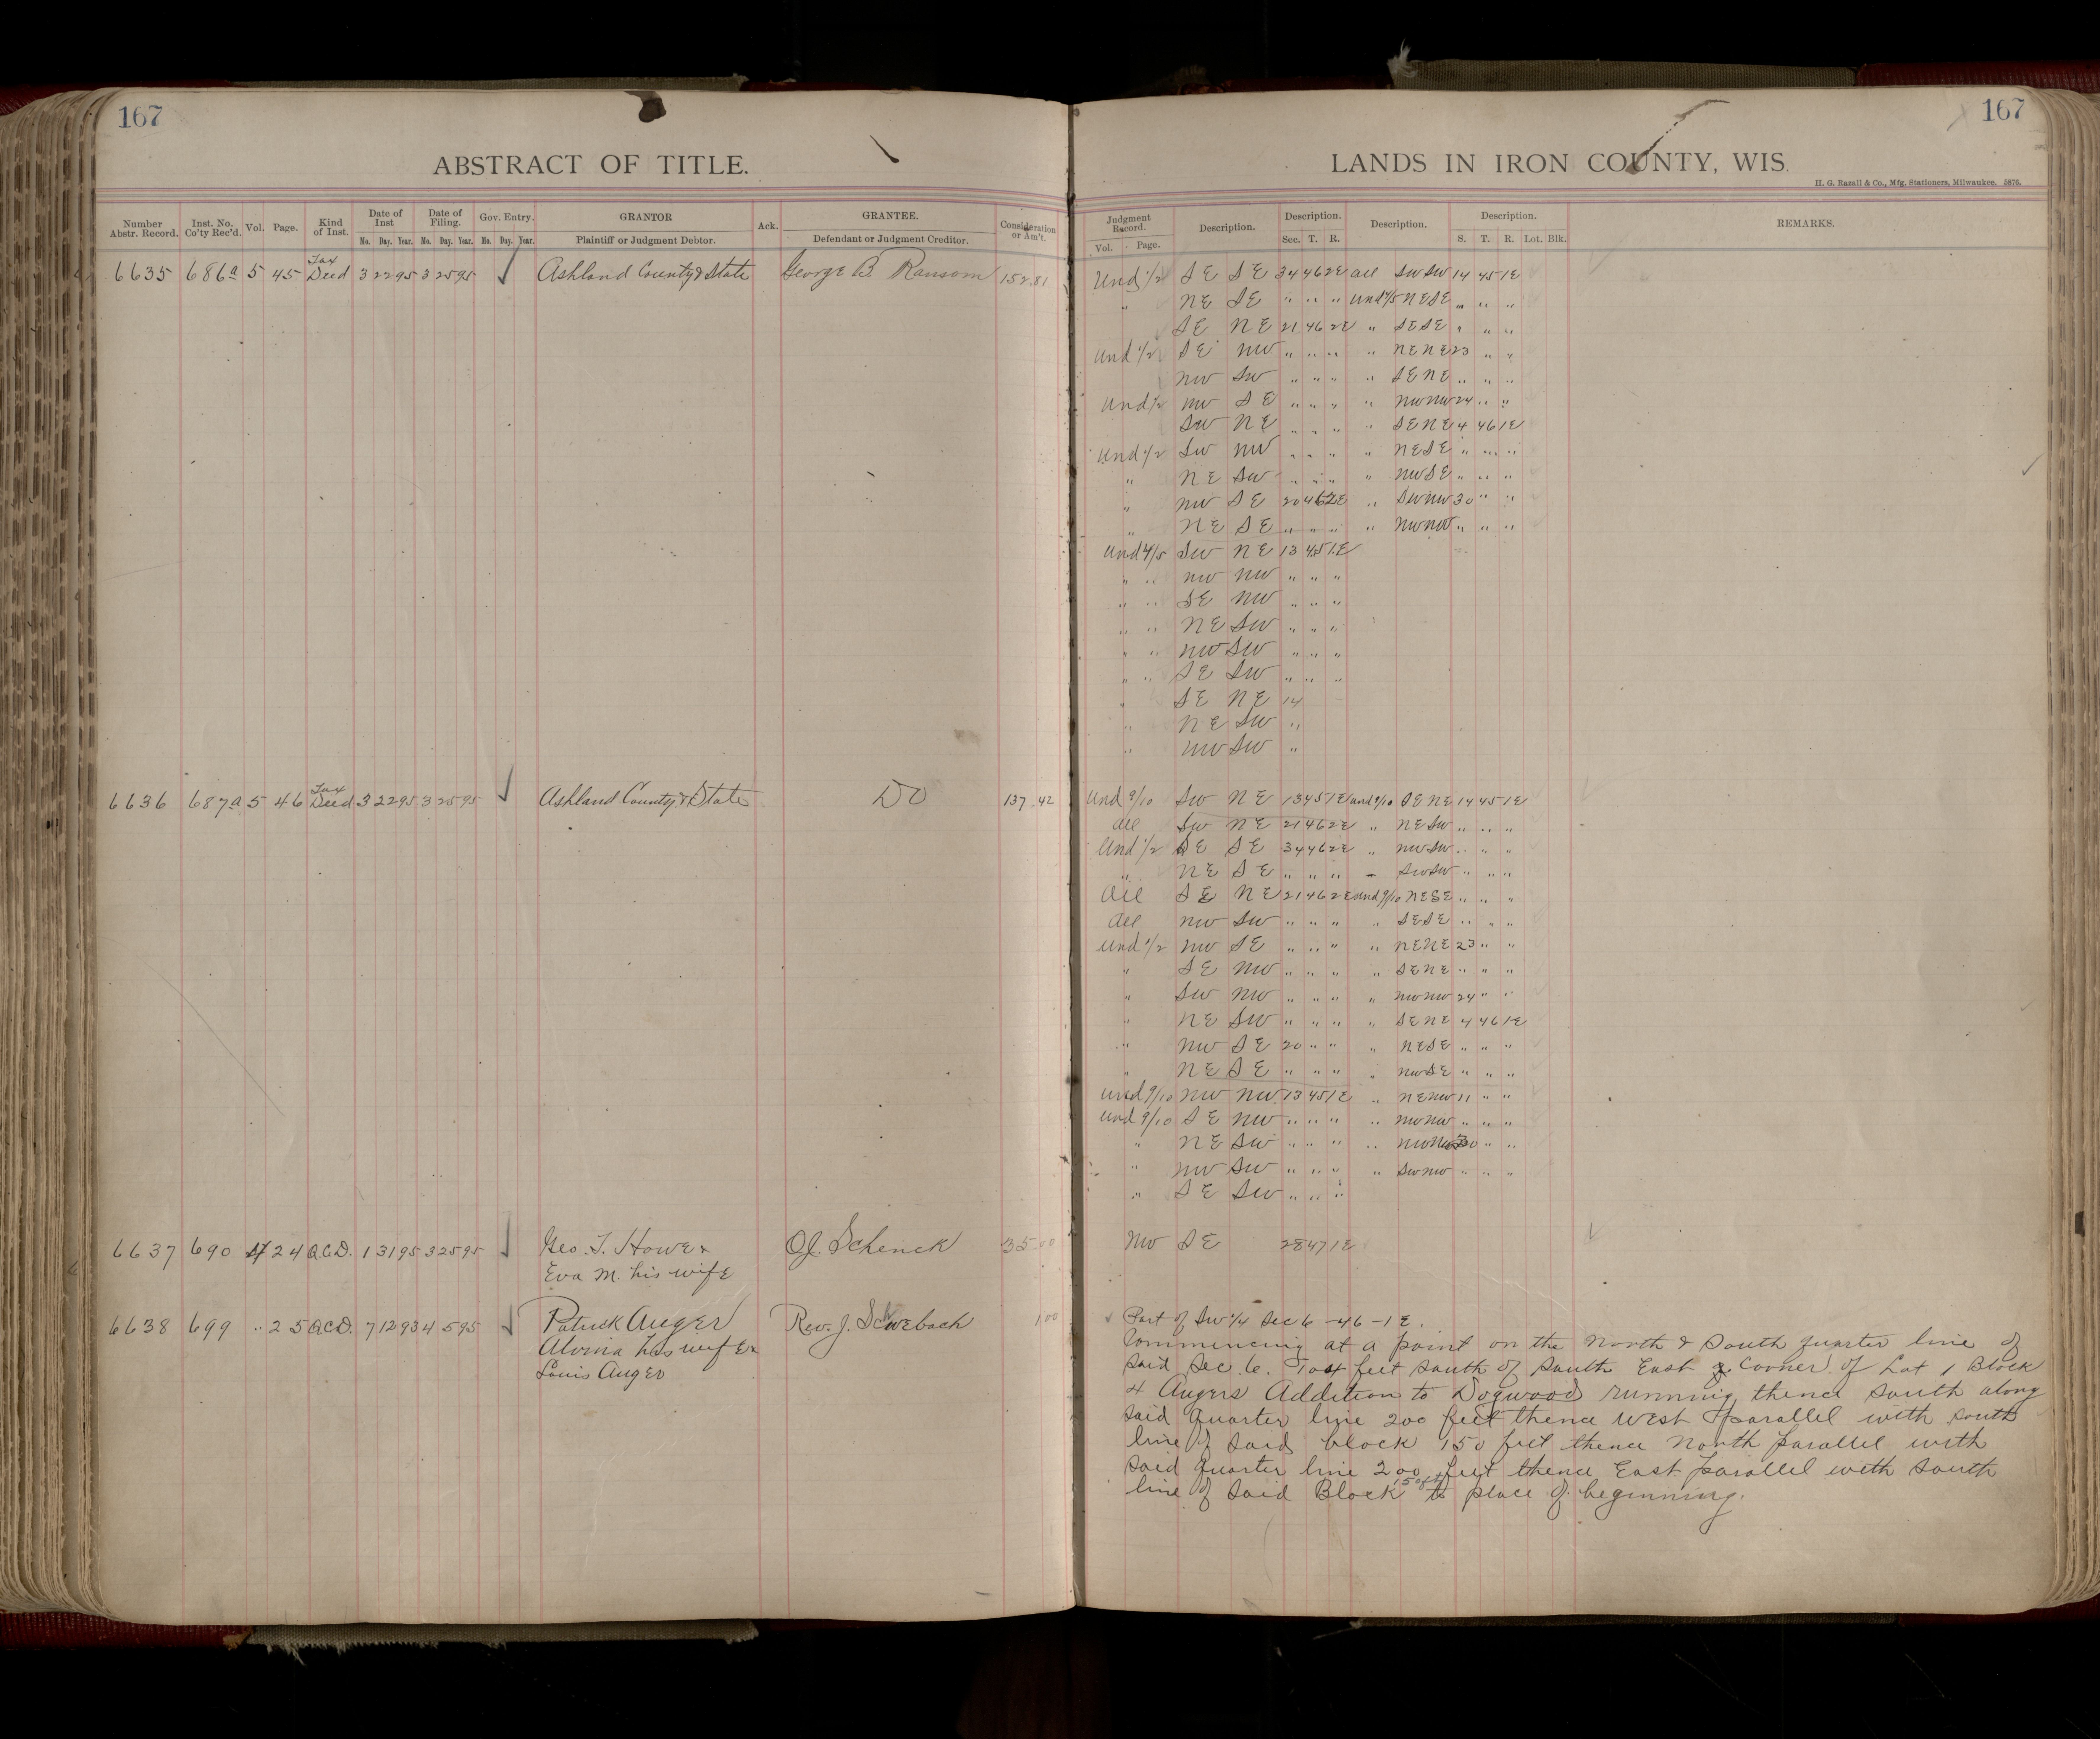 167
167
ABSTRACT OF TITLE.
LANDS IN IRON COUNTY, WIS.
H. G. Razall & Co., Mfg. Stationers, Milwaukee. 5876.
Number Abstr. Record. Inst. No. Co'ty Rec'd. Vol. Page. Kind of Inst. Date of Inst Mo. Day. Year. Date of Filing. Mo. Day. Year. Gov. Entry. Mo. Day. Year. GRANTOR Plaintiff or Judgment Debtor. Ack. GRANTEE. Defendant or Judgment Creditor. Consideration or Am't.
Judgment Record. Vol. Page. Description. Description. Sec. T. R. Description. Description. S. T. R. Lot. Blk. REMARKS.
6635 686a 5 45 Tax Deed 3 22 95 3 25 95 ✓ Ashland County & State George B. Ransom 152.81
Und 1/2 SE SE 34 46 2E all SW SW 14 45 1E
" NE SE " " " und 4/5 NE SE " " "
SE NE 21 46 2E " SE SE " " "
und 1/2 SE NW " " " " NE NE 23 " "
NW SW " " " " SE NE " " "
und 1/2 NW SE " " " " NW NW 24 " "
SW NE " " " " SE NE 4 46 1E
und 1/2 SW NW " " " " NE SE " " "
" NE SW " " " " NW SE " " "
" NW SE 20 46 2E " SW NW 30 " "
" NE SE " " " " NW NW " " "
und 4/5 SW NE 13 45 1E
" " NW NW " " "
" " SE NW " " "
" " NE SW " " "
" " NW SW " " "
" " SE SW " " "
" SE NE 14
" NE SW "
" NW SW "
6636 687a 5 46 Tax Deed 3 22 95 3 25 95 ✓ Ashland County & State DO 137.42
Und 9/10 SW NE 13 45 1E und 9/10 SE NE 14 45 1E
all SW NE 21 46 2E " NE SW " " "
Und 1/2 SE SE 34 46 2E " NW SW " " "
" NE SE " " " " SW SW " " "
all SE NE 21 46 2E und 9/10 NE SE " " "
all NW SW " " " " SE SE " " "
und 1/2 NW SE " " " " NE NE 23 " "
" SE NW " " " " SE NE " " "
" SW NW " " " " NW NW 24 " "
" NE SW " " " " SE NE 4 46 1E
" NW SE 20 " " " NE SE " " "
" NE SE " " " " NW SE " " "
und 9/10 NW NW 13 45 1E " NE NW 11 " "
und 9/10 SE NW " " " " NW NW " " "
" NE SW " " " " NW NW 30 " "
" NW SW " " " " SW NW " " "
" SE SW " " "
6637 690 4 24 Q.C.D. 1 31 95 3 25 95 ✓ Geo. T. Howe & O.J. Schenck 35.00
NW SE 28 47 1E
Eva M. his wife
6638 699 " 25 Q.C.D. 7 12 93 4 5 95 ✓ Patrick Auger Rev. J. Schwebach 1 00
Alvina his wife &
Louis Auger
Part of SW 1/4 Sec 6 - 46 - 1 E.
Commencing at a point on the North & South quarter line of
said Sec. 6. 704 feet South of South East Corner of Lot 1 Block
4 Augers Addition to Dogwood running thence South along
said quarter line 200 feet thence West parallel with South
line of said block 150 feet thence North parallel with
said quarter line 200 feet thence East parallel with South
line of said Block 150 ft to place of beginning.